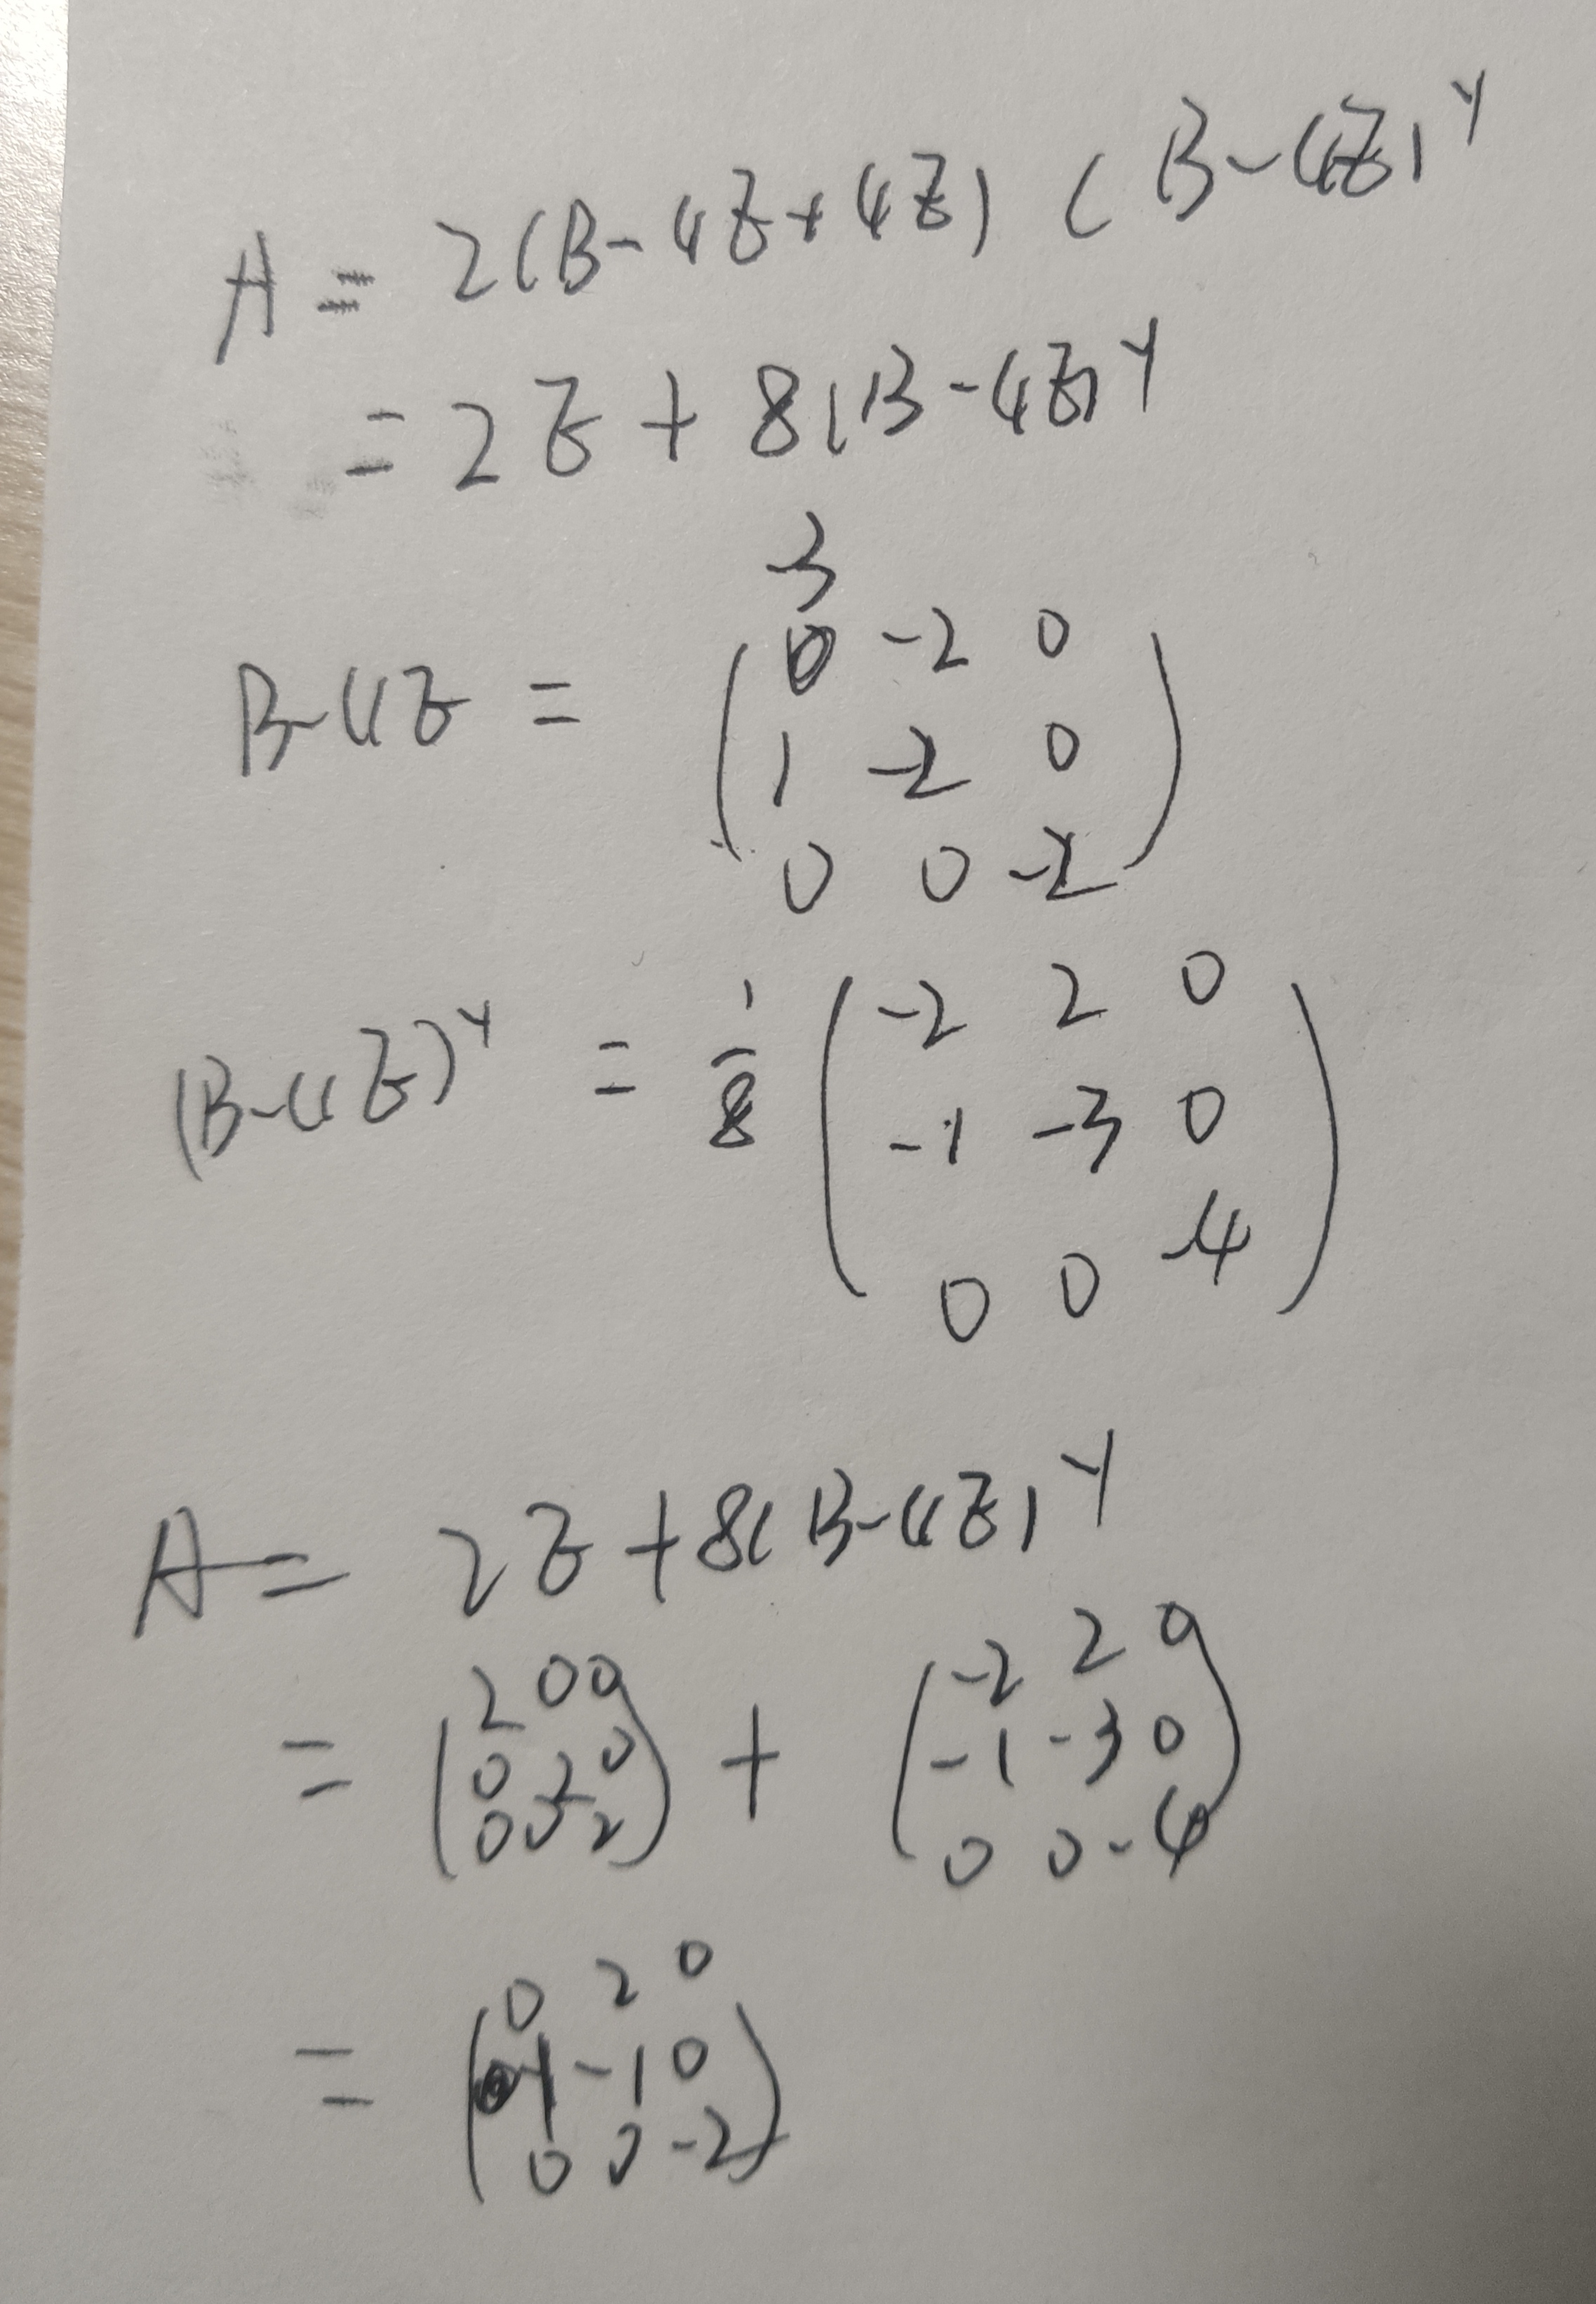 A = 2(B-4E+4E) (B-4E)⁻¹
= 2E + 8(B-4E)⁻¹
-3
B-4E = ( 0 -2 0
1 -2 0
0 0 -2 )
(B-4E)⁻¹ = 1/8 ( -2 2 0
-1 -3 0
0 0 -4 )
A = 2E + 8(B-4E)⁻¹
= ( 2 0 0 + ( -2 2 0
0 2 0 -1 -3 0
0 0 2 ) 0 0 -4 )
= ( 0 2 0
-1 -1 0
0 0 -2 )